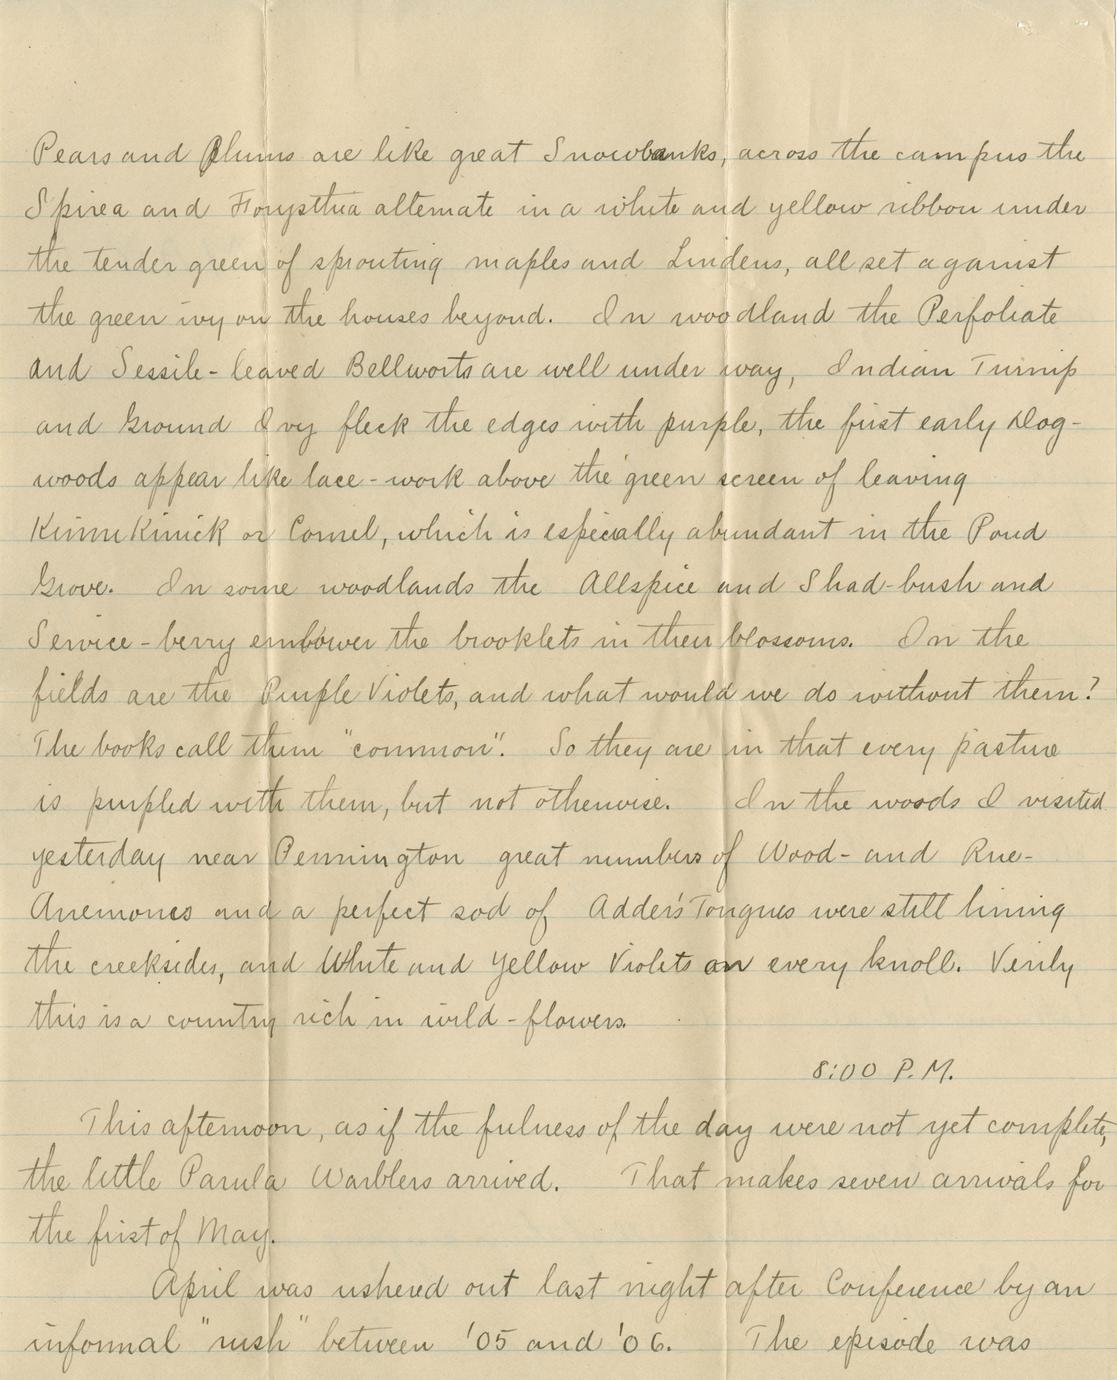 Pears and Plums are like great Snowbanks, across the campus the
Spirea and Forysthia alternate in a white and yellow ribbon under
the tender green of sprouting maples and Lindens, all set against
the green ivy on the houses beyond. In woodland the Perfoliate
and Sessile-leaved Bellworts are well under way, Indian Turnip
and Ground Ivy fleck the edges with purple, the first early Dog-
woods appear like lace-work above the green screen of leaving
KinniKinick or Cornel, which is especially abundant in the Pond
Grove. In some woodlands the Allspice and Shad-bush and
Service-berry embower the brooklets in their blossoms. On the
fields are the Purple Violets, and what would we do without them?
The books call them "common". So they are in that every pasture
is purpled with them, but not otherwise. In the woods I visited
yesterday near Pennington great numbers of Wood- and Rue-
Anemones and a perfect sod of Adder's Tongues were still lining
the creeksides, and White and Yellow Violets on every knoll. Verily
this is a country rich in wild-flowers.
8:00 P.M.
This afternoon, as if the fulness of the day were not yet complete,
the little Parula Warblers arrived. That makes seven arrivals for
the first of May.
April was ushered out last night after Conference by an
informal "rush" between '05 and '06. The episode was